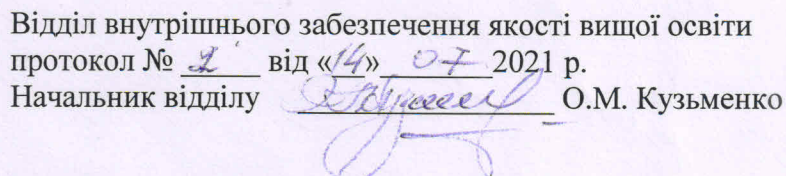 Відділ внутрішнього забезпечення якості вищої освіти
протокол № 2 від «14» 07 2021 р.
Начальник відділу О.М. Кузьменко